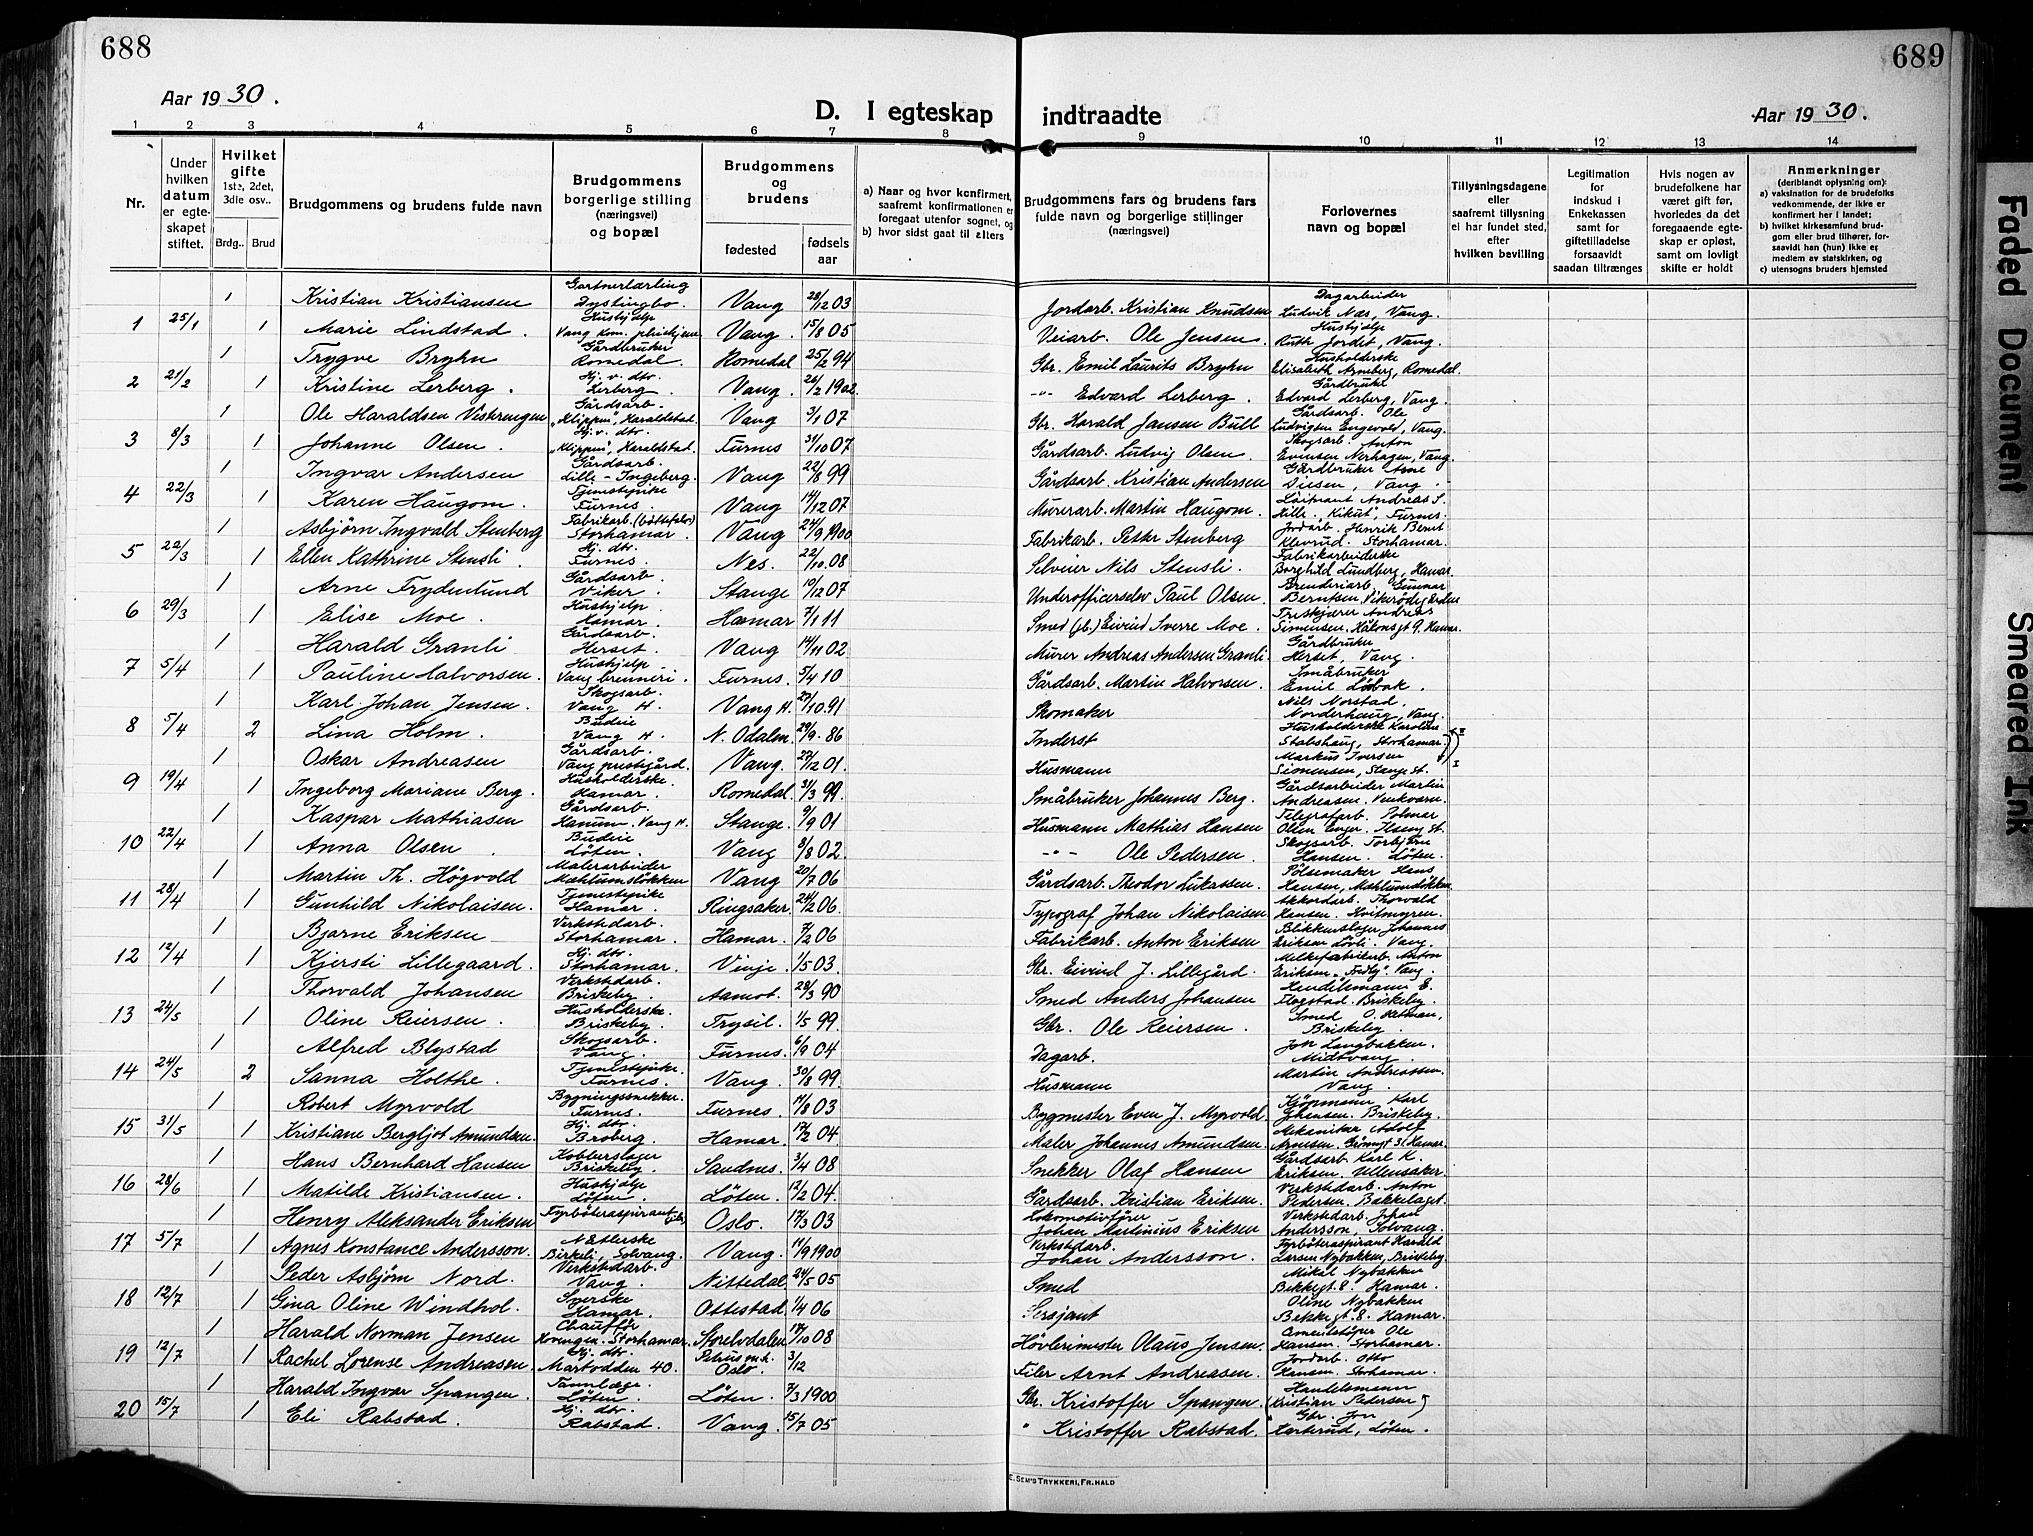 688
689
Aar 1930.
D. I egteskap indtraadte
Aar 1930.
1 2 3 4 5 6 7 8 9 10 11 12 13 14
Nr.
Under hvilken datum er egteskapet stiftet.
Hvilket gifte 1ste, 2det, 3die osv..
Brdg..
Brud
Brudgommens og brudens fulde navn
Brudgommens borgerlige stilling (næringsvei) og bopæl
Brudgommens og brudens
fødested
fødsels aar
a) Naar og hvor konfirmert, saafremt konfirmationen er foregaat utenfor sognet, og
b) hvor sidst gaat til alters
Brudgommens fars og brudens fars fulde navn og borgerlige stillinger (næringsvei)
Forlovernes navn og bopæl
Tillysningsdagene eller saafremt tillysning ei har fundet sted, efter hvilken bevilling
Legitimation for indskud i Enkekassen samt for giftetilladelse forsaavidt saadan tiltrænges
Hvis nogen av brudefolkene har været gift før, hvorledes da det foregaaende egteskap er opløst, samt om lovligt skifte er holdt
Anmerkninger (deriblandt oplysning om):
a) vaksination for de brudefolks vedkommende, der ikke er konfirmert her i landet;
b) hvilket kirkesamfund brudgom eller brud tilhører, forsaavidt han (hun) ikke er medlem av statskirken, og
c) utensogns bruders hjemsted
1 Kristian Kristiansen Gartnerlærling Dystingbo. Vang 28/12 03 Jordarb. Kristian Knudsen Dagarbeider Ludvik Næs, Vang.
1 25/1 1 Marie Lindstad. Hushjelp Vang kom. pleiehjem Vang. 15/8 05 Veiarb. Ole Jensen. Hushjelp Ruth Jordet, Vang.
1 Trygve Bryhn Gårdbruker Romedal. Romedal 25/2 94 Gbr. Emil Laurits Bryhn Husholderske Elisabeth Arneberg, Romedal.
2 21/2 1 Kristine Lerberg. Hj. v. dtr. Lerberg. Vang. 26/2 1902. -"- Edvard Lerberg. Gårdbruker Edvard Lerberg, Vang.
1 Ole Haraldsen Viskrengen Gårdsarb. "Klippen", Haraldstad. Vang 3/1 07 Gbr. Harald Jansen Bull Gårdsarb. Ole Ludvigsen Engevold, Vang.
3 8/3 1 Johanne Olsen. Hj. v. dtr. "Klippen", Haraldstad. Furnes 31/10 07 Gårdsarb. Ludvig Olsen. Skogsarb. Anton Evensen Nerhagen, Vang.
1 Ingvar Andersen Gårdsarb. Lille-Ingeberg. Vang 22/8 99 Gårdsarb. Kristian Andersen Gårdbruker Arne Diesen, Vang.
4 22/3 1 Karen Haugom. Tjenestepike Furnes. Vang 14/12 07 Murerarb. Martin Haugom. Andreas S. Lille "Kikut", Furnes.
1 Asbjørn Ingvald Stenberg Fabrikarb. Storhamar. Vang 24/9 1900 Fabrikarb. Petter Stenberg Jordarb. Henrik Bernt Klevrud. Storhamar.
5 22/3 1 Ellen Kathrine Stensli. Hj. dtr. Furnes. Nes. 22/10 08 Selveier Nils Stensli. Fabrikarbeiderske Borghild Lundberg, Hamar.
1 Arne Frydenlund Gårdsarb. Viker. Stange 10/12 07 Underofficerselev Paul Olsen. Brenderiarb. Gunnar Berntsen,
6 29/3 1 Elise Moe. Hushjelp. Hamar. Hamar 7/1 11 Smed Eivind Sverre Moe. Andreas Simensen. Håkonsgt 9. Hamar.
1 Harald Granli Gårdsarb. Herset. Vang 14/11 02 Murer Andreas Andersen Granli. Gårdbruker Herset, Vang.
7 5/4 1 Pauline Halvorsen. Hushjelp Vang brenneri. Furnes. 5/4 10 Gårdsarb. Martin Halvorsen. Småbruker Emil Løbak.
1 Karl Johan Jensen. Skogsarb. Vang H. Vang H. 27/10.91 Skomaker Nils Norstad, Norderhaug, Vang.
8 5/4 2 Lina Holm. Budeie Vang H. N. Odalen. 29/9. 86 Inderst Husholderske Karoline Stabshaug, Storhamar.
1 Oskar Andreasen Gårdsarb. Vang prestegård. Vang. 27/12 01. Husmann Markus Iversen Simensen, Stange st.
9 19/4 1 Ingeborg Mariane Berg. Husholderske Hamar. Romedal. 31/3 99. Småbruker Johannes Berg. Gårdsarbeider Martin Andreasen. Venkvarn.
1 Kaspar Mathiasen Gårdsarb. Hanum. Vang H. Stange. 9/9 01 Husmann Mathias Hansen Telegrafarb. Polmar Ollen Enger. Ilseng st.
10 22/4 1 Anna Olsen. Budeie Løten. Vang 3/8 02. -"- Ole Pedersen. Skogsarb. Torbjørn Hansen. Løten.
1 Martin Th. Høgvold Malerarbeider Mæhlumsløkken Vang 20/7 06 Gårdsarb. Theodor Lukassen. Pølsemaker Hans Hansen, Mæhlumsløkken
11 28/4 1 Gunhild Nikolaisen. Tjenestepike Hamar. Ringsaker. 24/2 06. Typograf Johan Nikolaisen Akkordarb. Thorvald Hansen. Kvitmyren.
1 Bjarne Eriksen Verkstedarb. Storhamar. Hamar. 7/2 06 Fabrikarb. Anton Eriksen Blikkenslager Johannes Eriksen Løvli. Vang.
12 12/4 1 Kjersti Lillegaard. Hj. dtr. Storhamar. Vinje. 1/5 03. Gbr. Eivind J. Lillegård. Melkefabrikarb. Anton Eriksen "Fredly". Vang.
1 Thorvald Johansen Verkstedarb. Briskeby. Aamot. 28/3 90 Smed Anders Johansen Handelsmann E. Flogstad. Briskeby.
13 24/5 1 Oline Reiersen. Husholderske. Briskeby. Trysil. 1/5 99. Gbr. Ole Reiersen. Smed O. Briskeby.
1 Alfred Blystad Skogsarb. Vang. Furnes. 6/9 04 Dagarb. Jon Langbakken. Midtvang.
14 24/5 2 Sanna Holthe. Tjenestepike. Furnes. Vang. 30/8 99. Husmann Martin Andreassen. Vang.
1 Robert Myrvold Bygningssnekker. Furnes. Furnes. 11/8 03 Bygmester Even J. Myrvold. Kjøpmann Karl Johansen. Briskeby.
15 31/5 1 Kristiane Bergljot Amundsen. Hj. dtr. Broberg. Hamar. 17/2 04. Maler Johannes Amundsen. Mekaniker Adolf Arnesen. Grønnegt 31. Hamar.
1 Hans Bernhard Hansen Kobberslager Briskeby. Sandnes. 3/4 08 Snekker Olaf Hansen Gårdsarb. Karl K. Eriksen. Ullensaker
16 28/6 1 Matilde Kristiansen. Hushjelp Løten. Løten. 12/2 04. Gårdsarb. Kristian Eriksen. Verkstedarb. Anton Pedersen. Bakkelaget.
1 Henry Aleksander Eriksen Fyrbøteraspirant Oslo. 17/3 03 Lokomotivfyrer Johan Martinius Eriksen Verkstedarb. Johan Andersson, Solvang.
17 5/7 1 Agnes Konstance Andersson. Næterske Birkeli, Solvang. Vang. 11/9 1900 Verkstedarb. Johan Andersson. Fyrbøteraspirant Harald Larsen Nybakken, Briskeby
1 Peder Asbjørn Nord. Verkstedarb. Vang. Nittedal 24/5 05 Smed Mikal Nybakken Bekkegt. 8. Hamar.
18 12/7 1 Gina Oline Windhol. Syerske Hamar. Ottestad. 1/4 06 Sersjant Oline Nybakken Bekkegt. 8. Hamar.
1 Harald Norman Jensen Chauffør Kovengen. Storhamar. Storelvdalen 17/10 08 Høvlerimester Olaus Jensen. Cementstøper Ole Hansen. Storhamar.
19 12/7 1 Rachel Lorense Andreasen. Hj. dtr. Martodden 40. Petrus m.h. Oslo. 3/12 Filer Arnt Andreasen. Jordarb. Otto Hansen. Storhamar.
1 Harald Ingvar Spangen. Tannlæge. Løten. Løten. 7/3 1900 Gbr. Kristoffer Spangen. Handelsmann Kristian Pedersen
20 15/7 1 Eli Rabstad. Hj. dtr. Rabstad. Vang. 15/7 05 " Kristoffer Rabstad. Gbr. Jon Løten.
E. SEM'S TRYKKERI, FR.HALD
Faded Document
Smeared Ink